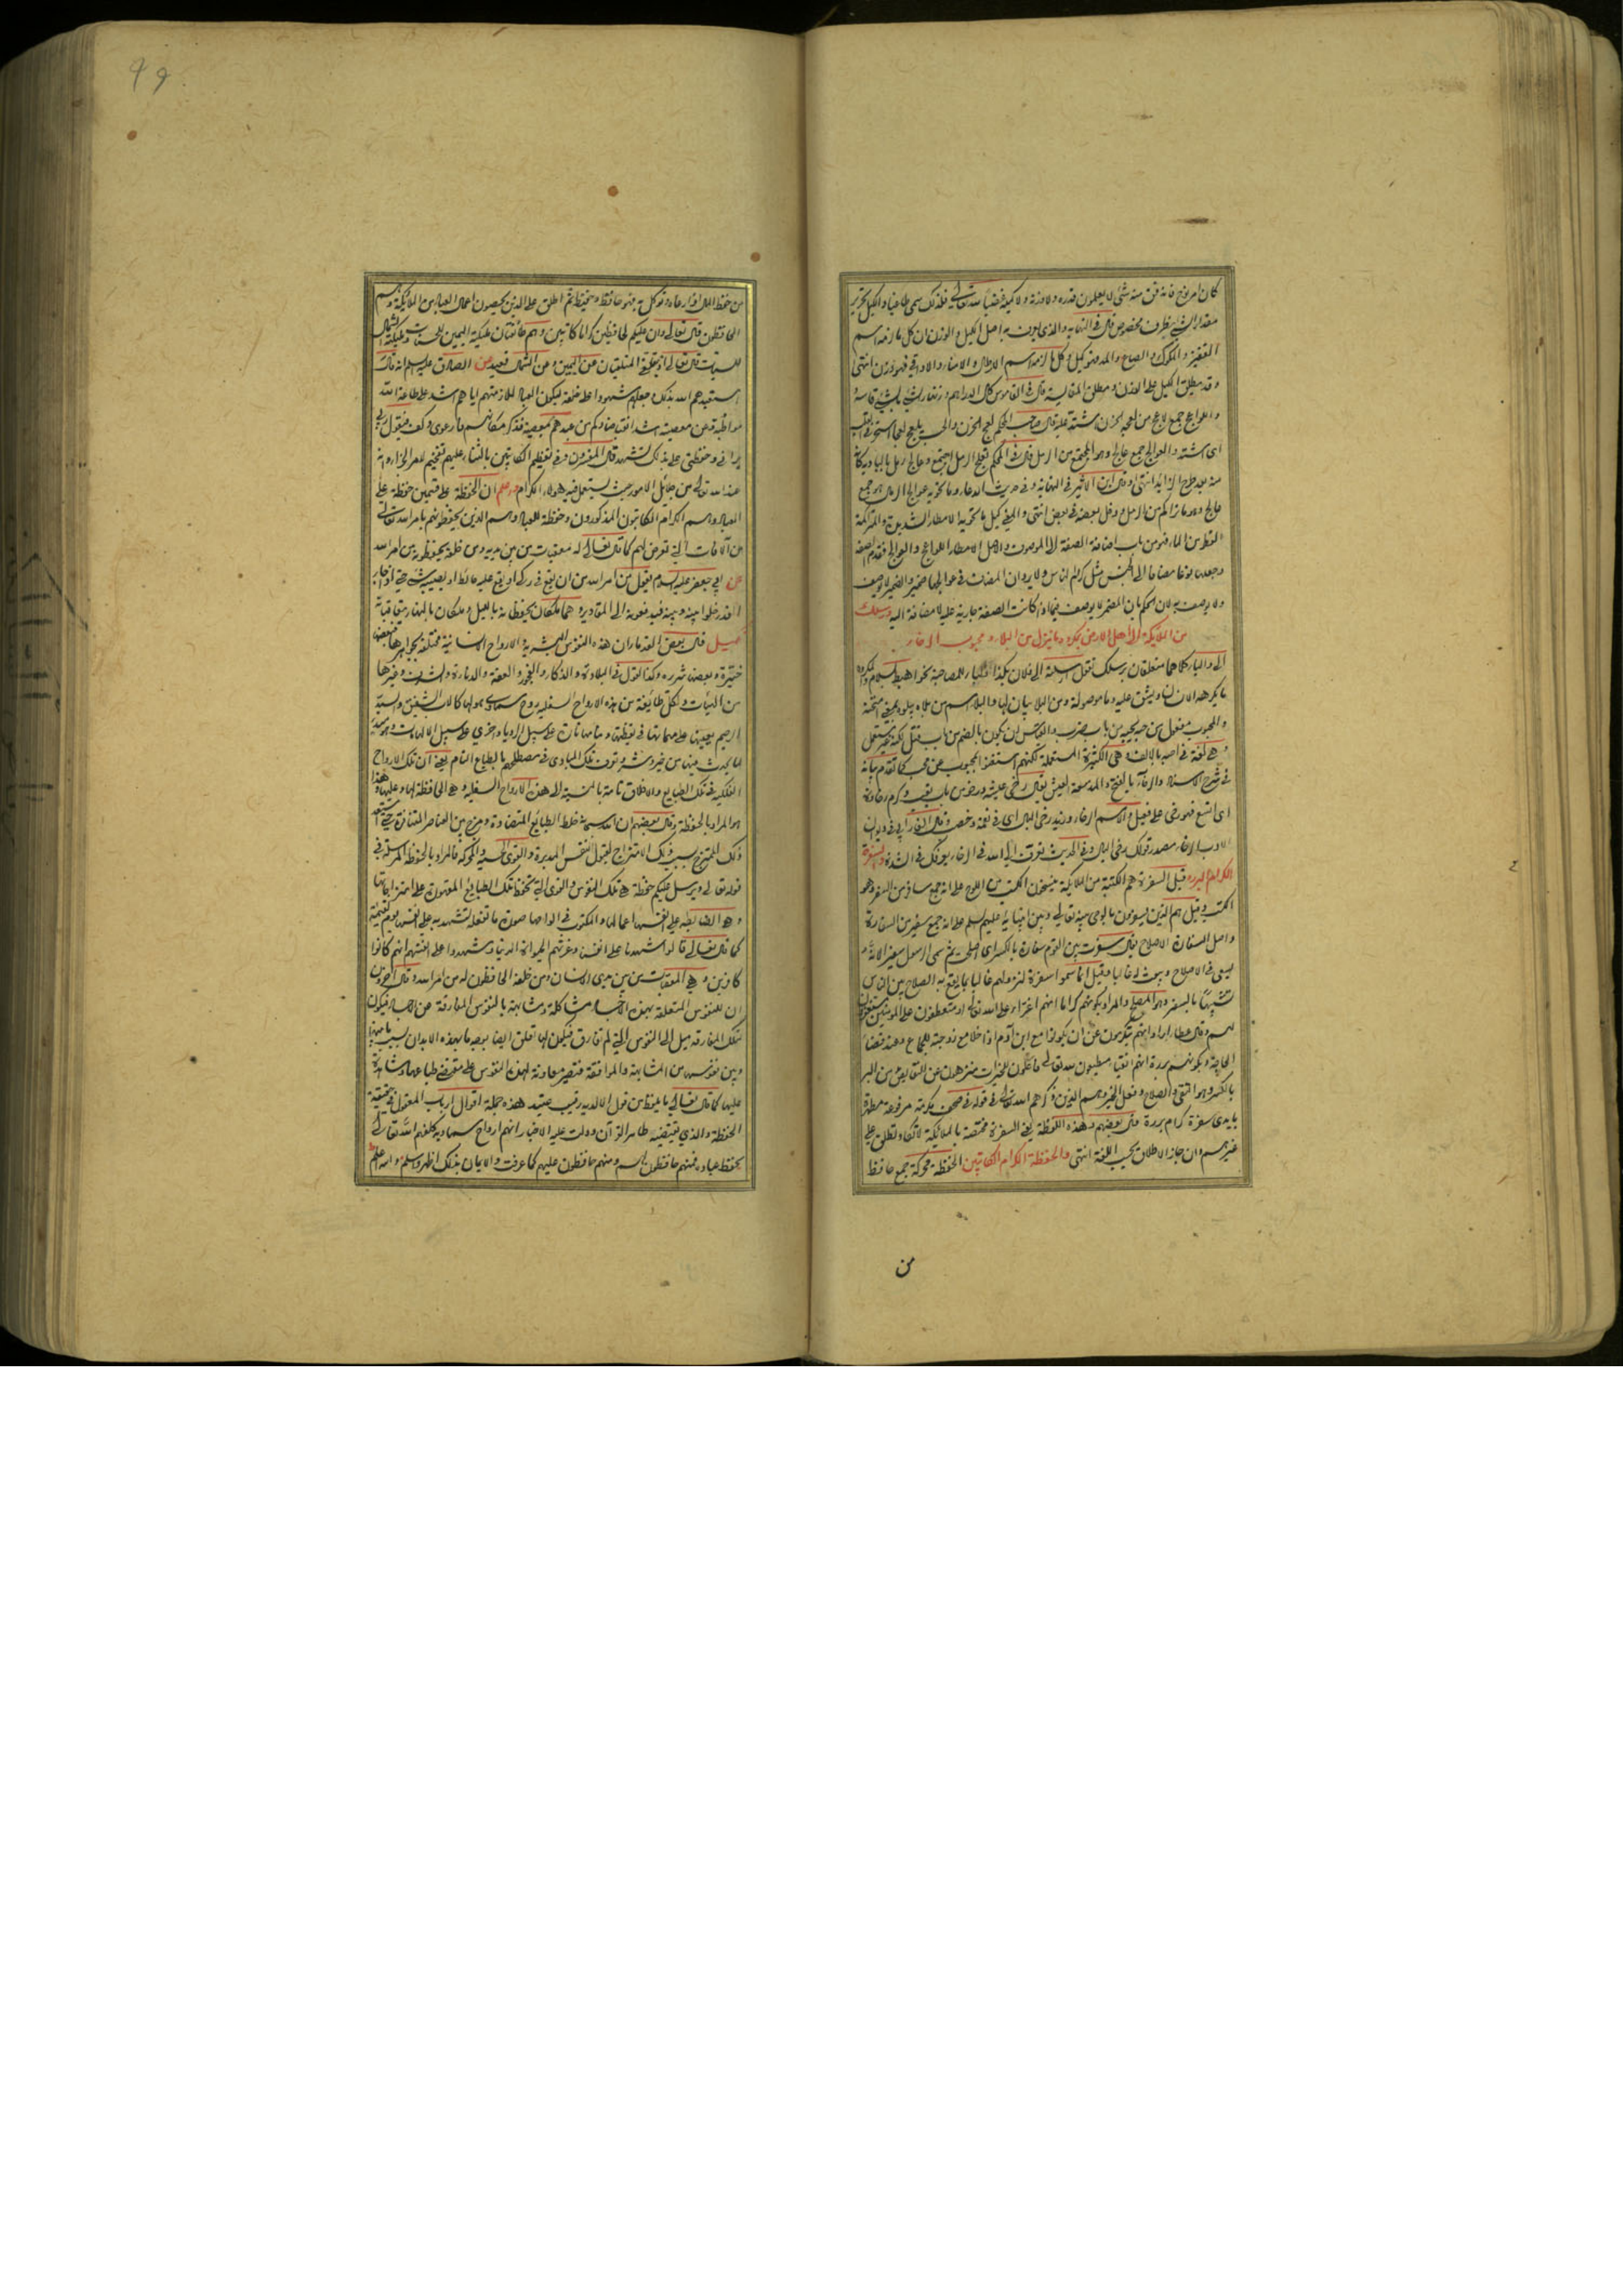 كان امر نوح فانه فتق منه شئ لا يعلمون قدره ولا وزنه ولا كيله غضبا لله تعالى فلذلك سمى طاغيا والكيل تحرير
مقدار الشئ بظرف مخصوص قال فى النهاية والذى يعرف به اصل الكيل والوزن ان كل ما لزمه اسم
القفيز والمكوك والصاع والمد فهو كيل وكل ما لزمه اسم الارطال والامناء والاواقى فهو وزن انتهى
وقد يطلق الكيل على الوزن ومطلق المقايسة قال فى القاموس كال الدراهم وزنها والشئ بالشئ قاسه
واللواعج جمع لاعج من لعجه الحزن اشتد عليه قال صاحب المحكم لعج الحزن والحب يلعج لعجا استحر فى القلب
اى اشتد والعوالج جمع عالج وهو المجتمع من الرمل قال فى المحكم تعلج الرمل اجتمع وعالج رمل بالبادية كانه
منه بعد طرح الزايد انتهى وقال ابن الاثير فى النهاية وفى حديث الدعاء وما تحويه عوالج الرمال هو جمع
عالج وهو ما تراكم من الرمل ودخل بعضه فى بعض انتهى والمعنى كيل ما تحويه الامطار الشديدة والمتراكمة
القطر من الماء فهو من باب اضافة الصفة الى الموصوف والاصل الامطار اللواعج والعوالج فقدم الصفة
وجعلت نوعا مضافا الى الجنس مثل كرام الناس ولا يرد ان المضاف فى عوالجها ضمير والضمير لا يوصف
ولا يوصف به لان الحكم بان المضمر لا يوصف فيما اذا كانت الصفة جارية عليه لا مضافة اليه ورسلك
من الملائكة الى اهل الارض بمكروه ما ينزل من البلاء ومحبوب الرخاء
الى والباء كلاهما متعلقان برسلك تقول ارسلته الى فلان بكذا والباء للمصاحبة نحو اهبط بسلام والمكروه
ما يكرهه الانسان ويشق عليه وما موصولة ومن البلاء بيان لها والبلاء اسم من بلاه يبلوه بمعنى امتحنه
والمحبوب مفعول من حبه يحبه من باب ضرب والقياس ان يكون بالضم من باب قتل لكنه غير مستعمل
وهى لغة فى احبه بالالف وهى الكثيرة المستعملة لكنهم استغنوا بمحبوب عن محب كما تقدم بيانه
فى شرح الاسناد والرخاء بالفتح والمد سعة العيش يقال رخى عيشه ورخو من باب تعب وكرم رخاوة
اى اتسع فهو رخى على فعيل والاسم الرخاء وزيد رخى البال اى فى نعمة وخصب وقال الفارابى فى ديوان
الادب الرخاء مصدر قولك رخى البال وفى الحديث تعرف الى الله فى الرخاء يعرفك فى الشدة والسفرة
الكرام البررة قيل السفرة هم الكتبة من الملائكة ينسخون الكتب من اللوح على انه جمع سافر من السفر وهو
الكتب وقيل هم الذين يسفرون بالوحى بينه تعالى وبين انبيائه عليهم السلم على انه جمع سفير من السفارة
واصل السفارة الاصلاح يقال سفرت بين القوم سفارة بالكسر اى اصلحت ثم سمى الرسول سفيرا لانه
يسعى فى الاصلاح ويبعث له غالبا وقيل انما سموا سفرة لنزولهم غالبا بما يقع به الصلاح بين الناس
تشبيها بالسفير وهو المصلح والمراد بكونهم كراما انهم اعزاء على الله تعالى او متعطفون على المؤمنين يستغفرون
لهم وقال عطاء اراد انهم يتكرمون عن ان يكونوا مع ابن آدم اذا خلا مع زوجته للجماع وعند قضاء
الحاجة وبكونهم بررة انهم اتقياء مطيعون لله تعالى فاعلون للخيرات منزهون عن النقايص من البر
بالكسر وهو التقى والصلاح وفعل الخير وهم الذين ذكرهم الله تعالى فى قوله فى صحف مكرمة مرفوعة مطهرة
بايدى سفرة كرام بررة قال بعضهم وهذه اللفظة يعنى السفرة مختصة بالملائكة لا تكاد تطلق على
غيرهم وان جاز الاطلاق بحسب اللغة انتهى والحفظة الكرام الكاتبين الحفظة محركة جمع حافظ
من
من حفظ المال اذا رعاه وتوكل به فهو حافظ وحفيظ ثم اطلق على الذين يحصون اعمال العباد من الملائكة وهم
الحافظون قال تعالى وان عليكم لحافظين كراما كاتبين وهم طائفتان ملئكة اليمين للحسنات وملئكة الشمال
للسيئات قال تعالى اذ يتلقى المتلقيان عن اليمين وعن الشمال قعيد عن الصادق عليه السلم انه قال
استعبدهم الله بذلك وجعلهم شهودا على خلقه ليكون العباد لملازمتهم اياهم اشد على طاعة الله
مواظبة وعن معصيته اشد انقباضا وكم من عبد هم بمعصية فذكر مكانهم فارعوى وكف فيقول ربى
يرانى وحفظتى على بذلك تشهد قال المفسرون وفى تعظيم الكاتبين بالثناء عليهم تفخيم لامر الجزاء وانه
عند الله تعالى من جلائل الامور حيث يستعمل فيه هؤلاء الكرام واعلم ان الحفظة على قسمين حفظة على
العباد وهم الكرام الكاتبون المذكورون وحفظة للعباد وهم الذين يحفظونهم بامر الله تعالى
من الآفات التى تعرض لهم كما قال تعالى له معقبات من بين يديه ومن خلفه يحفظونه من امر الله
عن ابى جعفر عليه السلام يقول من امر الله من ان يقع فى ركى او يقع عليه حائط او يصيبه شئ حتى اذا جاء
القدر خلوا بينه وبينه فيدفعونه الى المقادير وهما ملكان يحفظانه بالليل وملكان بالنهار يتعاقبانه
تكميل قال بعض العلماء ان هذه النفوس البشرية والارواح الانسانية مختلفة بجواهرها فبعضها
خيرة وبعضها شريرة وكذا القول فى البلادة والذكاء والفجور والعفة والدناءة والشرف وغيرها
من الهيئات ولكل طائفة من هذه الارواح السفلية روح سماوى هو لها كالاب الشفيق والسيد
الرحيم يعينها على مهماتها فى يقظتها ومنامها تارة على سبيل الرؤيا واخرى على سبيل الالهامات وهو مبدأ
لما يحدث فيها من خير وشر وتعرف تلك المبادى فى مصطلحهم بالطباع التام يعنى ان تلك الارواح
الفلكية فى تلك الطبايع والاخلاق تامة بالنسبة الى هذه الارواح السفلية وهى الحافظة لها وعليها وهذا
هو المراد بالحفظة وقال بعضهم ان الله سبحانه خلط الطبائع المتضادة ومزج بين العناصر المتنافرة حتى استعد
ذلك الممتزج بسبب ذلك الامتزاج لقبول النفس المدبرة والقوى الحسية والمحركة فالمراد بالحفظة المرسلة فى
قوله تعالى ويرسل عليكم حفظة هى تلك النفوس والقوى التى تحفظ تلك الطبايع المقهورة على امتزاجاتها
وهى الضابطة على انفسها اعمالها والمكتوب فى الواحها صورة ما تفعله لتشهد به على انفسها يوم القيمة
كما قال تعالى قالوا شهدنا على انفسنا وغرتهم الحيوة الدنيا وشهدوا على انفسهم انهم كانوا
كافرين وهى المعقبات من بين يدى الانسان ومن خلفه الحافظون له من امر الله وقال آخرون
ان للنفوس المتعلقة بهذه الاجساد مشاكلة ومشابهة بالنفوس المفارقة عن الاجساد فيكون
لتلك المفارقة ميل الى النفوس التى لم تفارق فيكون لها تعلق ايضا بوجه ما بهذه الابدان بسبب ما بينها
وبين نفوسها من المشابهة والموافقة فتصير معاونة لهذه النفوس على مقتضى طباعها وشاهدة
عليها كما قال تعالى ما يلفظ من قول الا لديه رقيب عتيد هذه جملة اقوال ارباب المعقول فى حقيقة
الحفظة والذى يقتضيه ظاهر القرآن ودلت عليه الاخبار انهم ارواح سماوية كلفهم الله تعالى
بحفظ عباده فمنهم حافظون لهم ومنهم حافظون عليهم كما عرفت والايمان بذلك اظهر واسلم والله اعلم